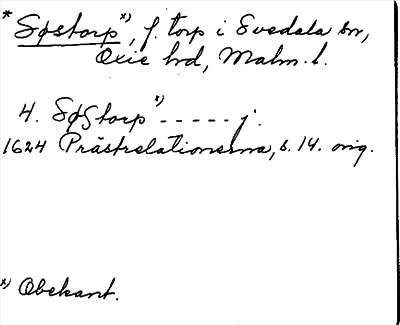 * Søstorp x), f. torp i Svedala sn,
Oxie hrd, Malm. l.
4. SøStorp x) ----- j.
1624 Prästrelationerna, s. 14. orig.
x) Obekant.